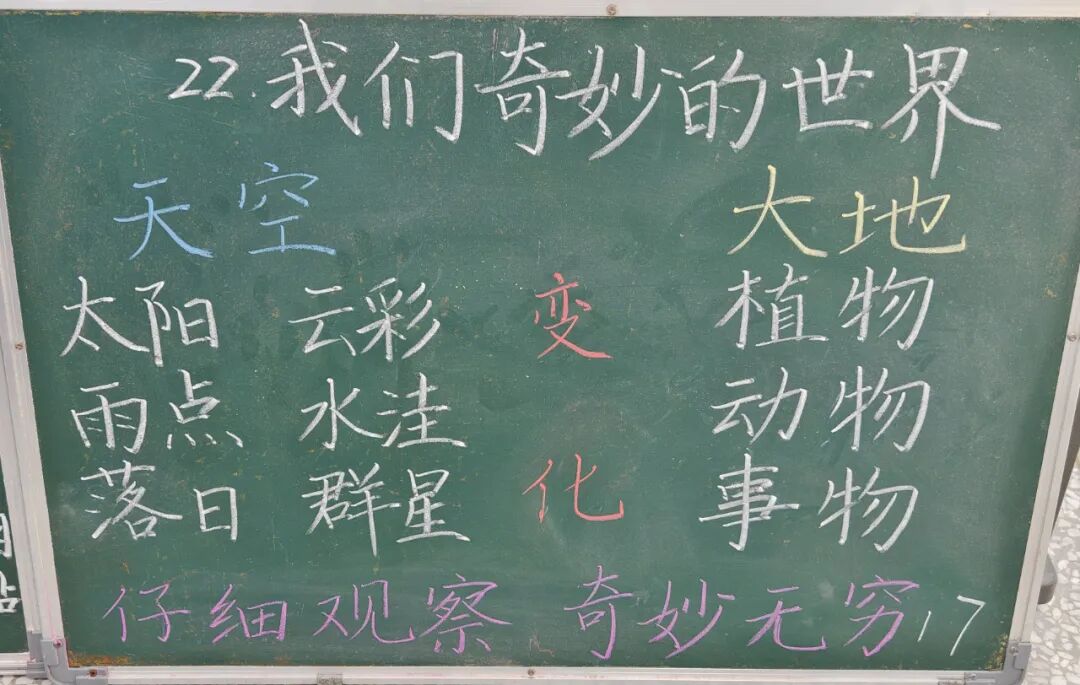 22.我们奇妙的世界
天空 大地
太阳 云彩 变 植物
雨点 水洼 动物
落日 群星 化 事物
仔细观察 奇妙无穷 17